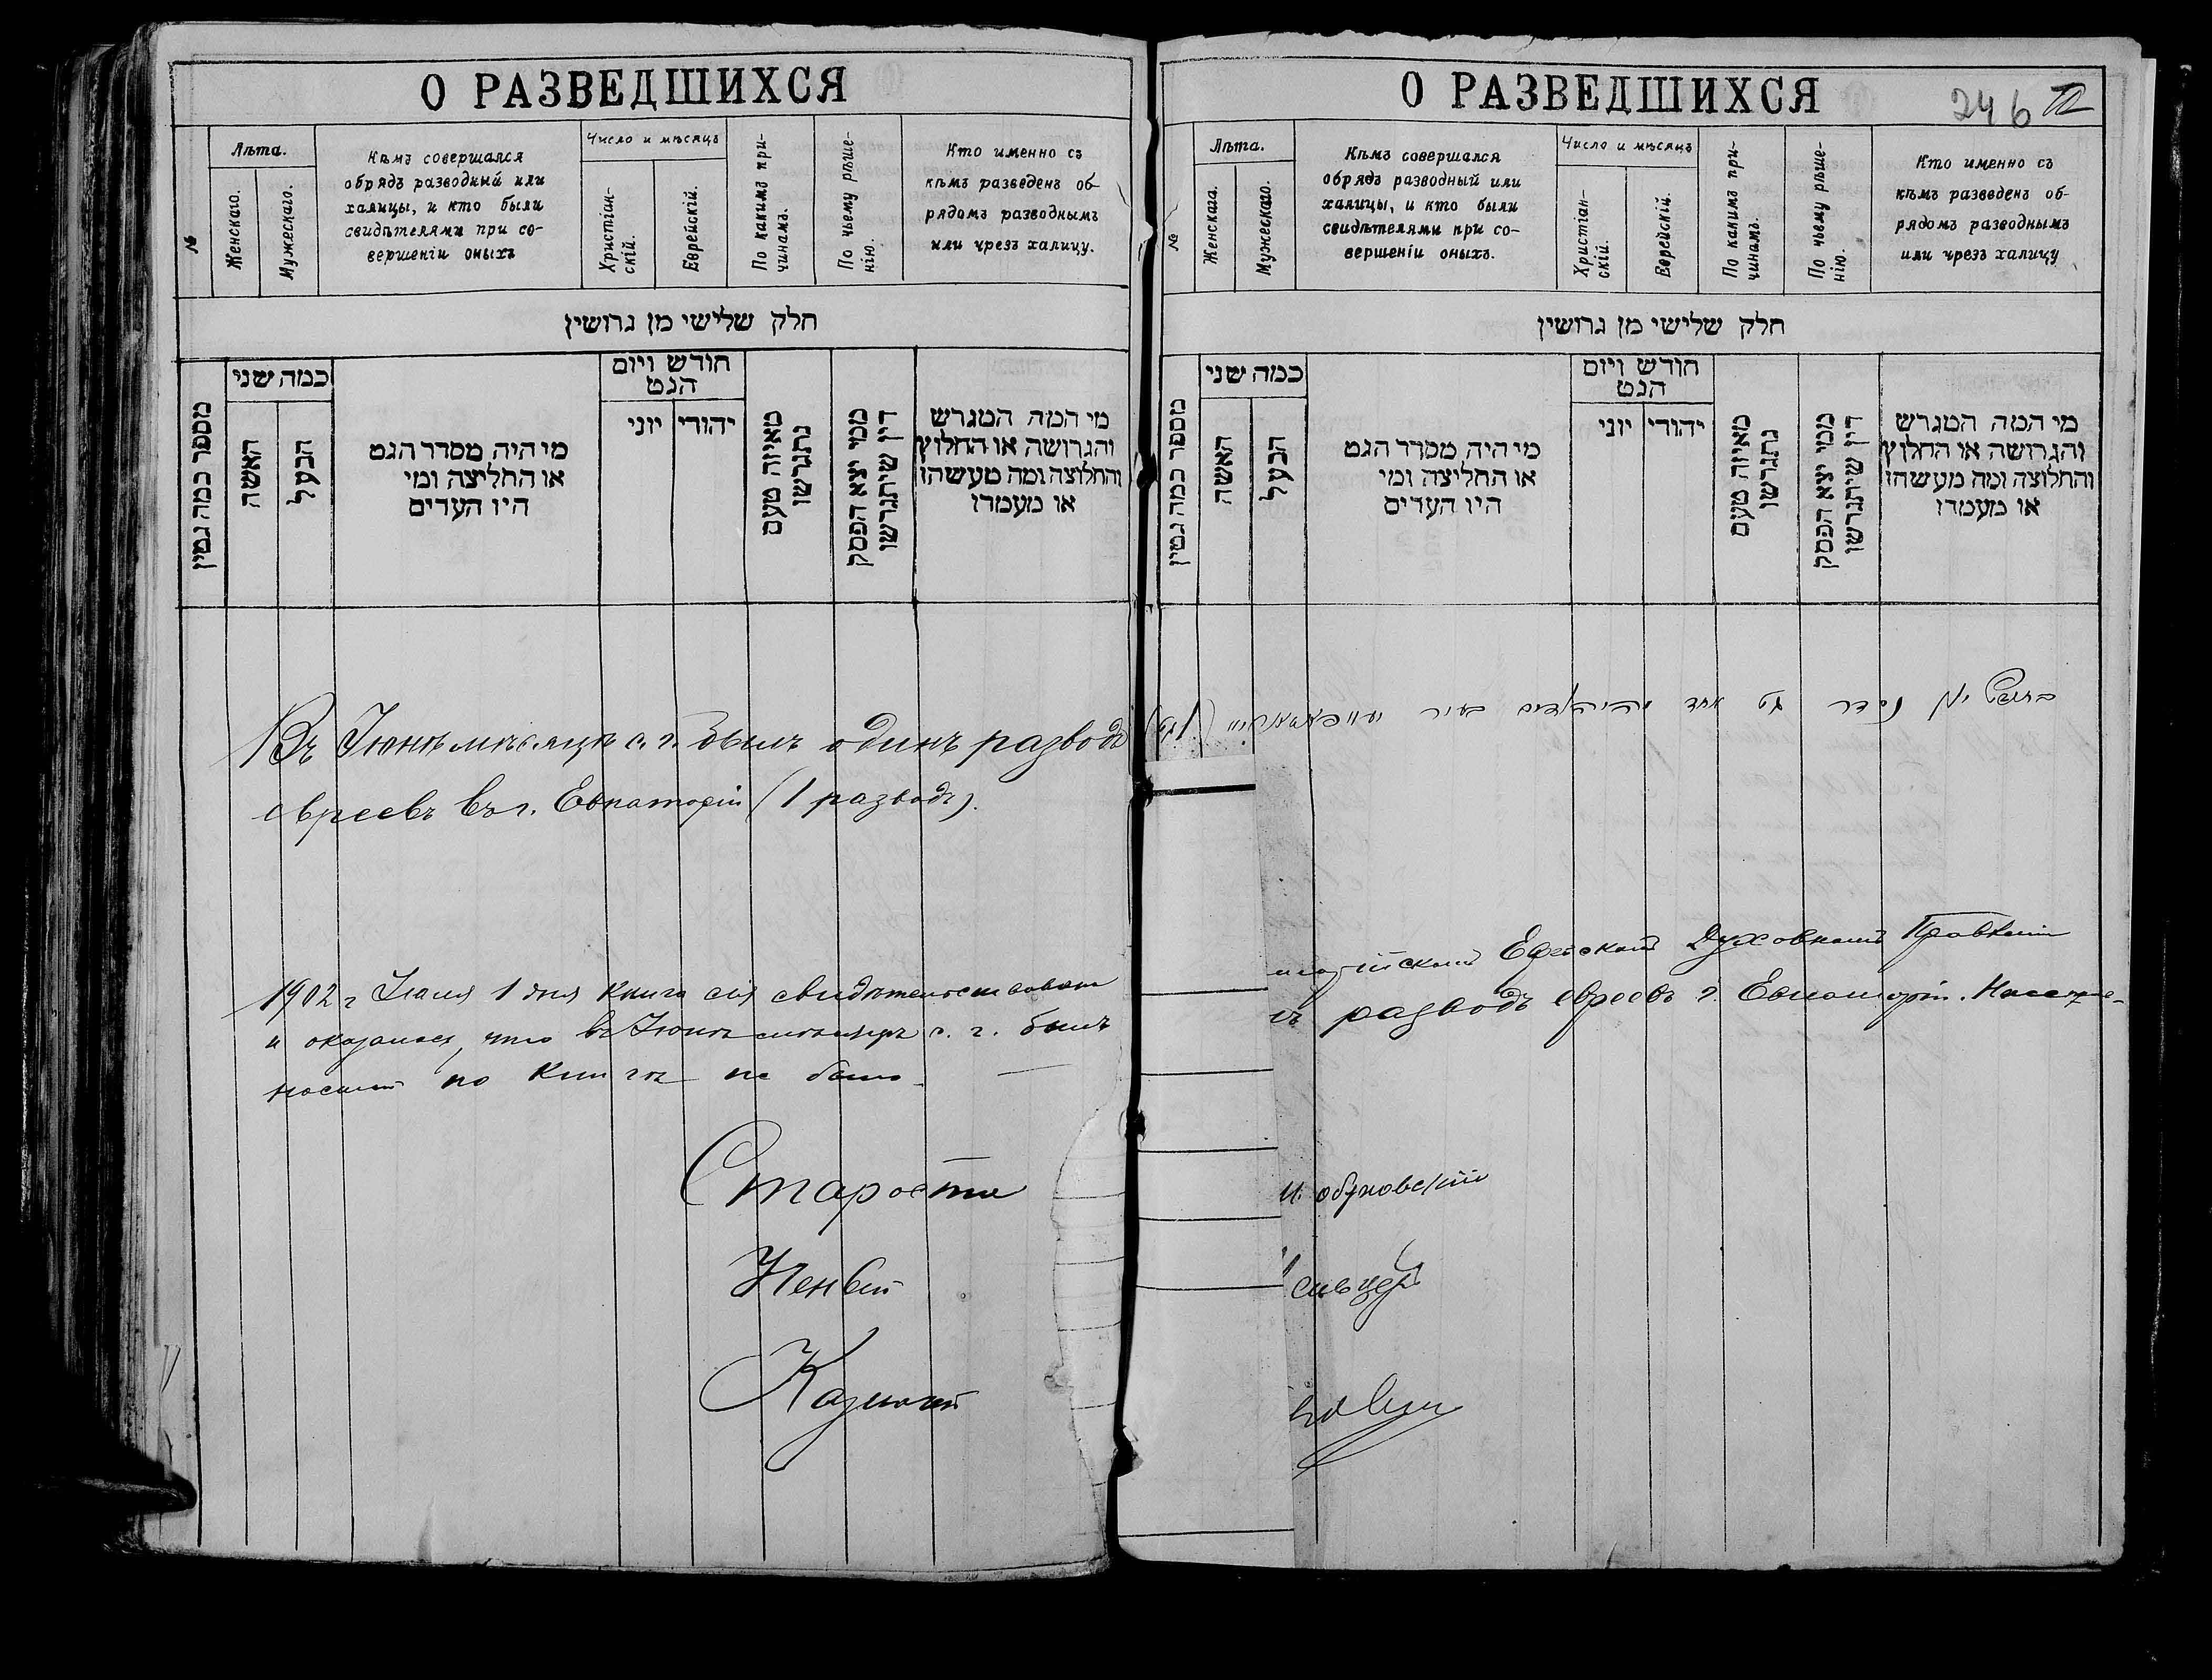 О РАЗВЕДШИХСЯ
№
Лѣта.
Женскаго.
Мужескаго.
Кѣмъ совершался
обрядъ разводный или
халицы, и кто были
свидѣтелями при со-
вершеніи оныхъ
Число и мѣсяцъ
Христіан-
скій.
Еврейскій.
По какимъ при-
чинамъ.
По чьему рѣше-
нію.
Кто именно съ
кѣмъ разведенъ об-
рядомъ разводнымъ
или чрезъ халицу.
חלק שלישי מן גרושין
מספר כמה גטין
כמה שני
האשה
הבעל
מי היה מסדר הגט
או החליצה ומי
היו העדים
חודש ויום
הגט
יוני
יהודי
מאיזה טעם
נתגרשו
ממי יצא הפסק
דין שיתגרשו
מי המה המגרש
והגרושה או החלוץ
והחלוצה ומה מעשהו
או מעמדו
Въ Іюнѣ мѣсяцѣ с. г. былъ одинъ разводъ
евреевъ въ г. Евпаторіи (1 разводъ).
1902 г Іюля 1 дня книга сія свидѣтельствована
и оказалось, что въ Іюнѣ мѣсяцѣ с. г. былъ
по книгѣ не было
Староста
Казначей
О РАЗВЕДШИХСЯ
246
№
Лѣта.
Женскаго.
Мужескаго.
Кѣмъ совершался
обрядъ разводный или
халицы, и кто были
свидѣтелями при со-
вершеніи оныхъ.
Число и мѣсяцъ
Христіан-
скій.
Еврейскій.
По какимъ при-
чинамъ.
По чьему рѣше-
нію.
Кто именно съ
кѣмъ разведенъ об-
рядомъ разводнымъ
или чрезъ халицу
חלק שלישי מן גרושין
מספר כמה גטין
כמה שני
האשה
הבעל
מי היה מסדר הגט
או החליצה ומי
היו העדים
חודש ויום
הגט
יוני
יהודי
מאיזה טעם
נתגרשו
ממי יצא הפסק
דין שיתגרשו
מי המה המגרש
והגרושה או החלוץ
והחלוצה ומה מעשהו
או מעמדו
גט אחד
Духовнымъ
разводъ евреевъ г. Евпаторіи.